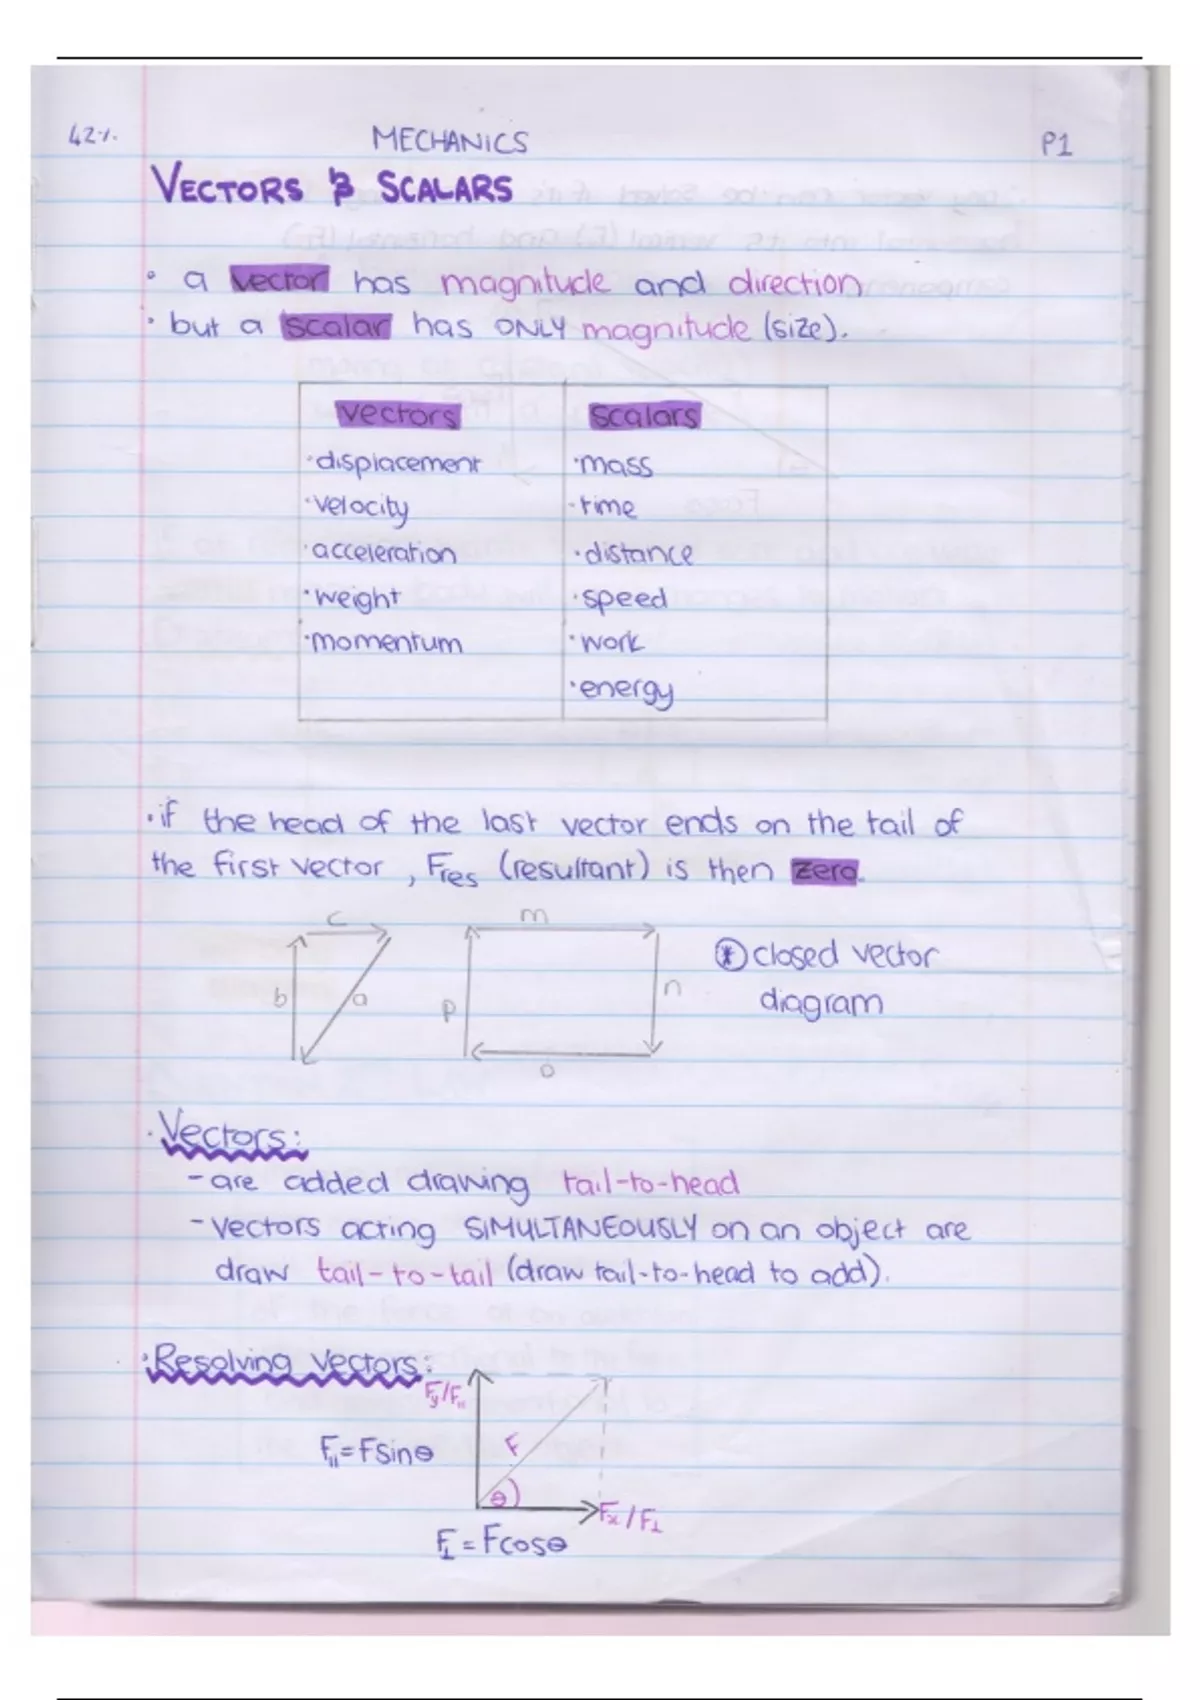 42%.
MECHANICS
P1
VECTORS & SCALARS
• a vector has magnitude and direction
• but a scalar has ONLY magnitude (size).
vectors
scalars
• displacement
• mass
• velocity
• time
• acceleration
• distance
• weight
• speed
• momentum
• work
• energy
• if the head of the last vector ends on the tail of
the first vector, Fres (resultant) is then zero.
c
m
b
a
p
n
o
* closed vector
diagram
• Vectors:
- are added drawing tail-to-head
- vectors acting SIMULTANEOUSLY on an object are
draw tail-to-tail (draw tail-to-head to add).
• Resolving Vectors:
Fy/F||
F||=Fsinθ
F
θ
Fx/F⊥
F⊥=Fcosθ